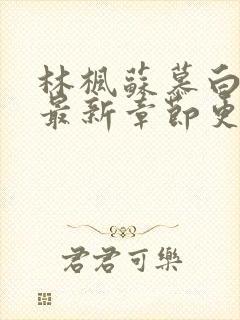 林楓蘇慕白
最新章節更
君君可樂